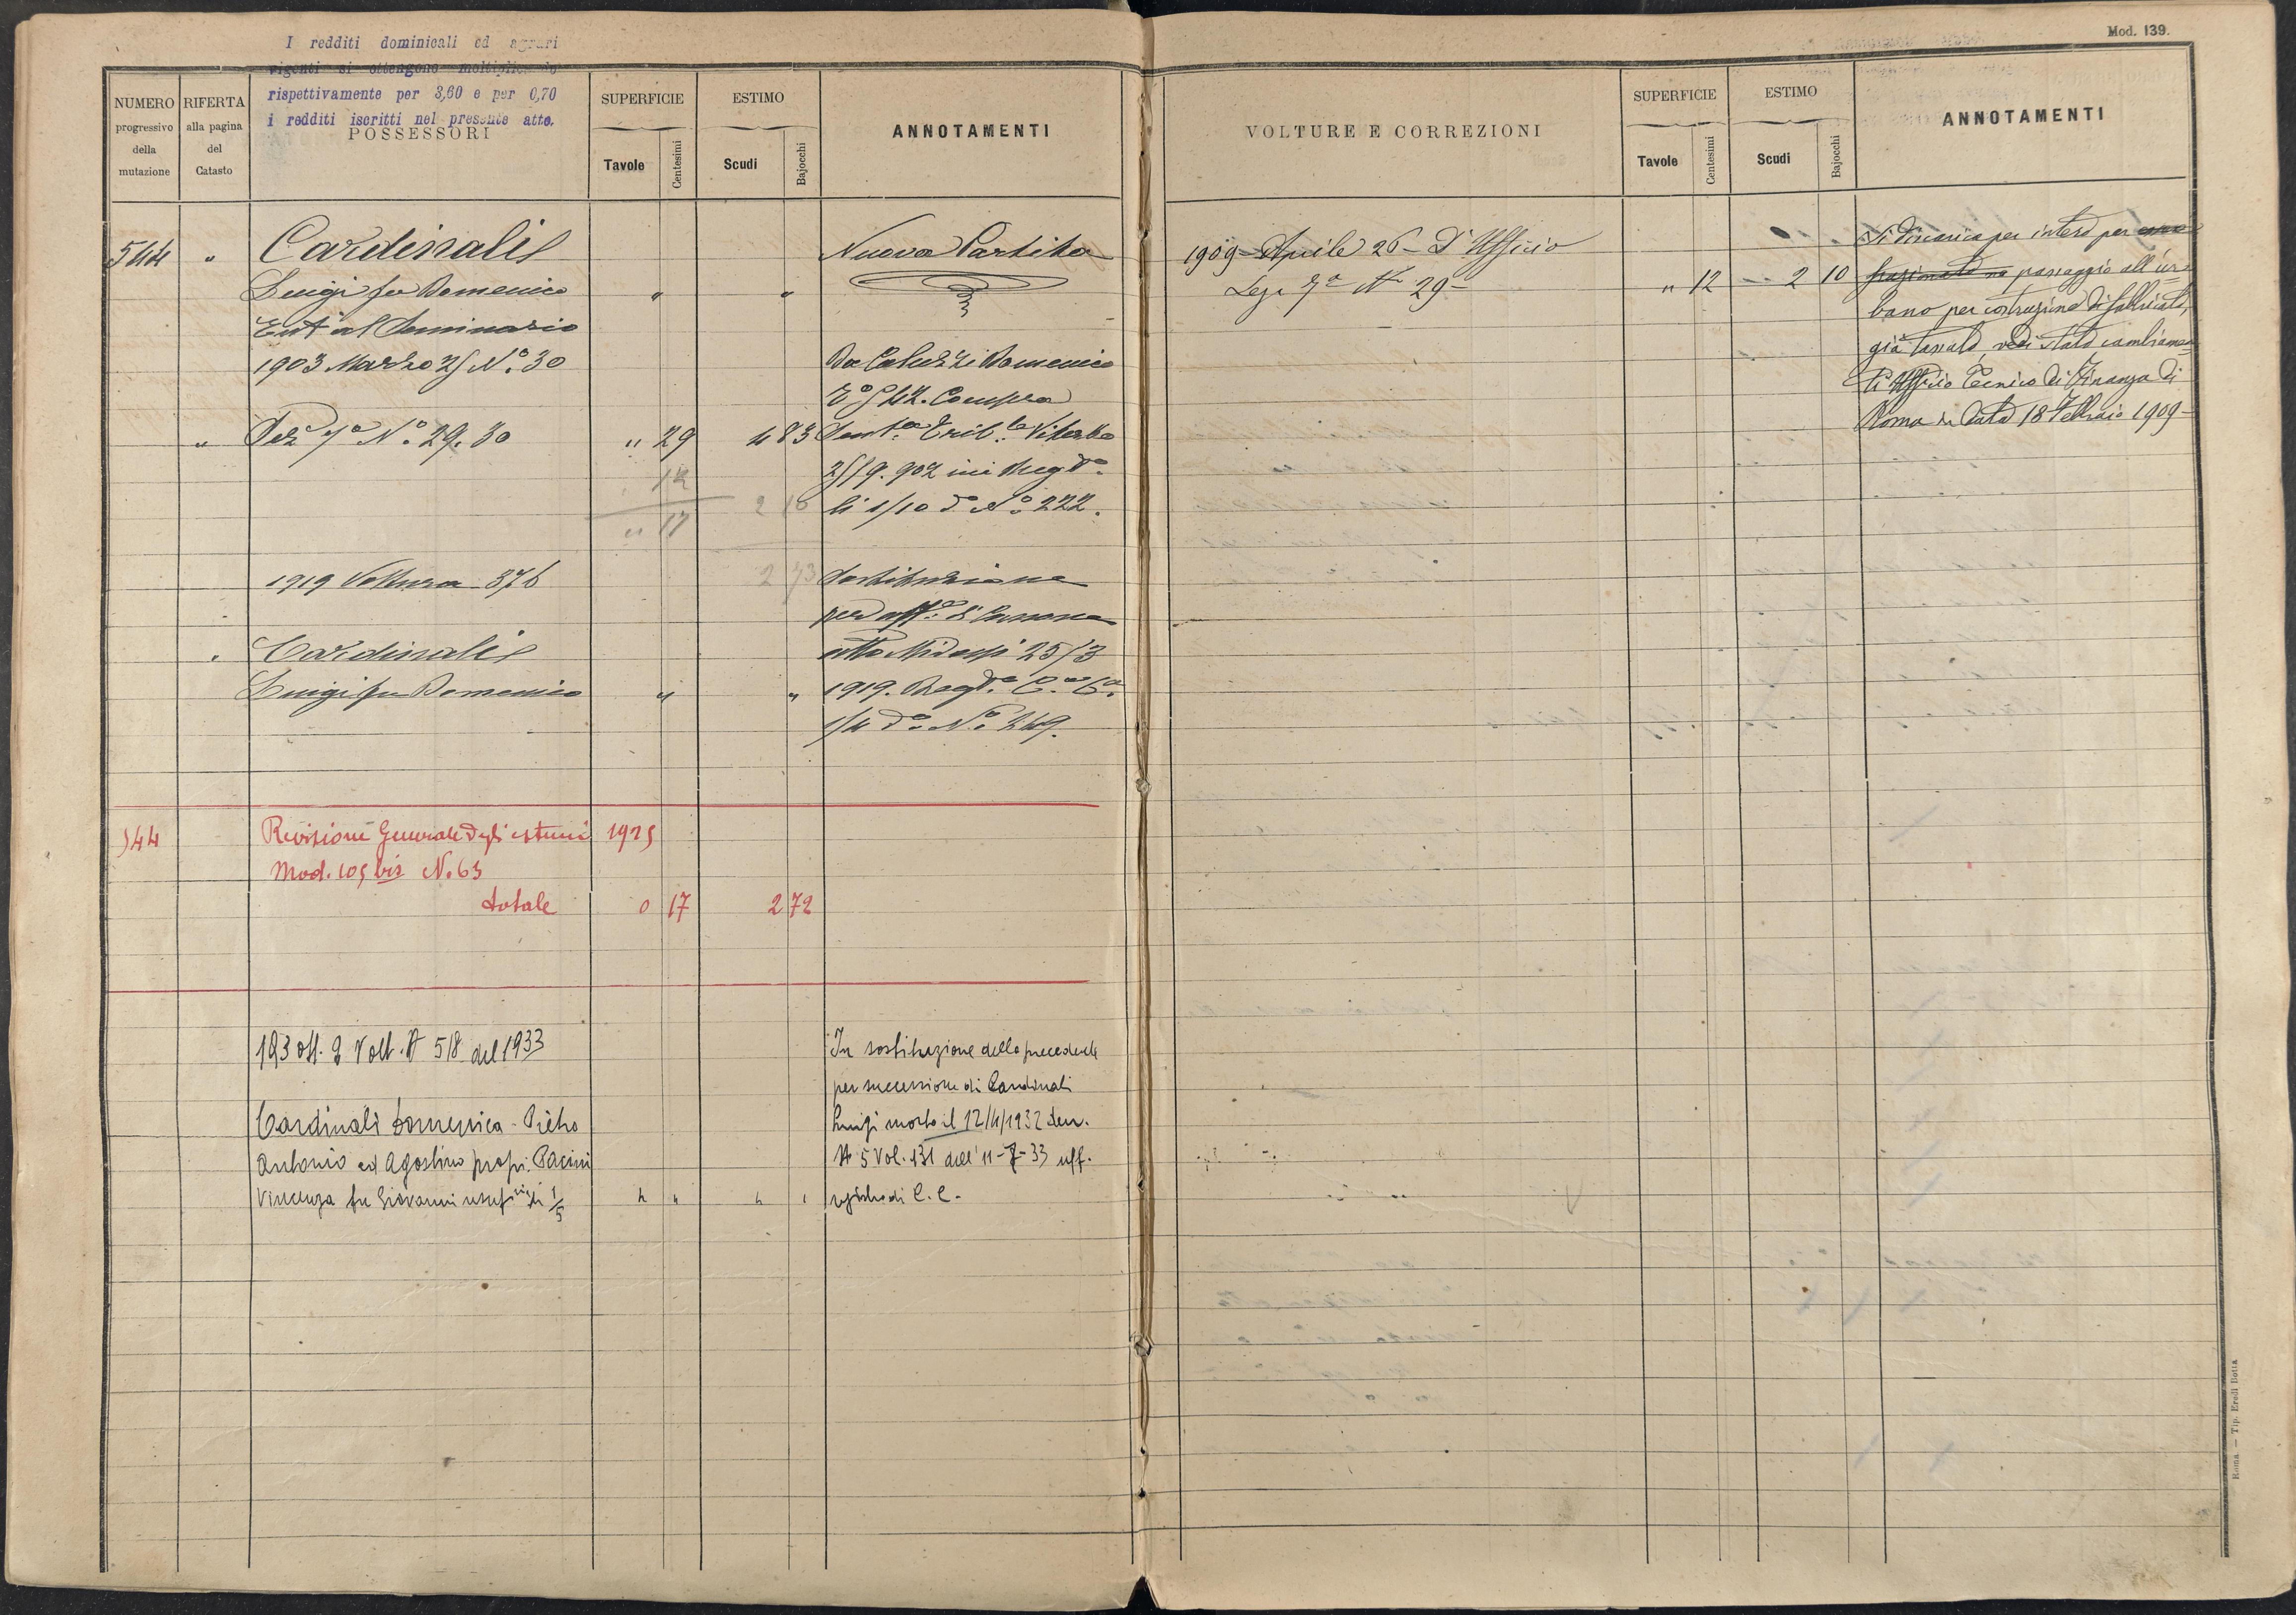 Mod. 139.
I redditi dominicali ed agrari
vigenti si ottengono moltiplicando
rispettivamente per 3,60 e per 0,70
i redditi iscritti nel presente atto.
NUMERO progressivo della mutazione
RIFERTA alla pagina del Catasto
POSSESSORI
SUPERFICIE
Tavole
Centesimi
ESTIMO
Scudi
Bajocchi
ANNOTAMENTI
544 " Cardinali
Luigi fu Domenico " "
Enf. al Seminario
1903 Marzo 25 N.º 30
" Sez.e 7ª Nº 29. 30 " 29 4 83
12
2 10
" 17
2 73
Nuova Partita
Da Domenico
Compra
Sent.a Trib.le Viterbo
25/9. 902 ivi Reg.to
li 1/10 dº Nº 222.
1919 Voltura 376
" Cardinali
Luigi fu Domenico " "
Sostituzione
per aff.e Canone
atto 25/3
1919. Reg.to C.a C.a
1/4 dº Nº 249.
544 Revisione Generale degli estimi 1925
Mod. 105 bis N. 63
totale 0 17 2 72
193 Volt. N 518 del 1933
Cardinali Domenica - Pietro
Antonio ed Agostino propr. Pacini
Vincenza fu Giovanni usuf. di 1/5 " " " "
In sostituzione della precedente
per successione di Cardinali
Luigi morto il 12/4/1932 den.
N 5 Vol. 131 dell' 11-7-33 uff.
registro di C. C.
VOLTURE E CORREZIONI
SUPERFICIE
Tavole
Centesimi
ESTIMO
Scudi
Bajocchi
ANNOTAMENTI
1909 - Aprile 26 - D'Ufficio
Sez.e 7ª N. 29 - " 12 - 2 10
Si discarica per intero per
frazionato passaggio all'ur-
bano per costruzione di fabbricato,
già tassato, vedi stato cambiamen-
ti Ufficio Tecnico di Finanza di
Roma in data 18 Febbraio 1909 -
Roma — Tip. Eredi Botta